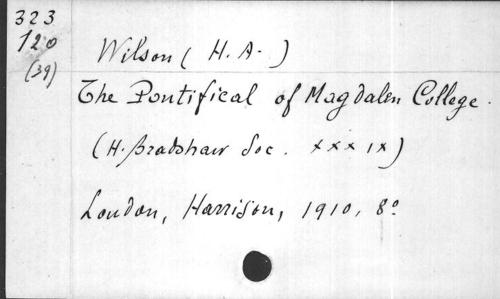 323
120
(39)
Wilson (H. A.)
The Pontifical of Magdalen College.
(H. Bradshaw Soc. XXXIX)
London, Harrison, 1910, 8º